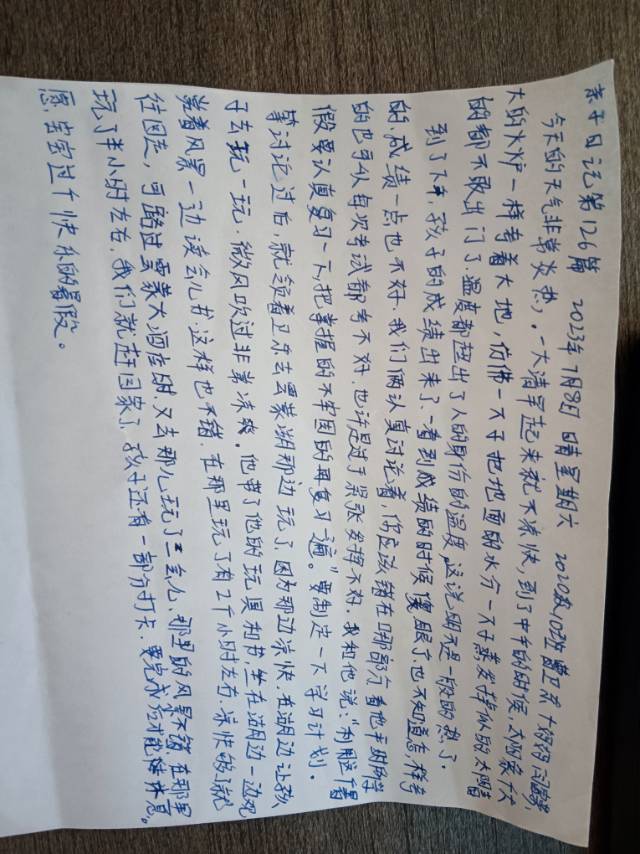 亲子日记第126篇 2023年7月8日 晴 星期六 2020级10班 卫东
今天的天气非常炎热,一大清早起来就不凉快,到了中午的时候,太阳像个大
大的火炉一样考着大地,仿佛一下子把地面的水分一下子蒸发掉 的太阳
的都不敢出门了.温度都超出了人的身份的温度,这说明不是一般的热了.
到了下午,孩子的成绩出来了、看到成绩的时候傻眼了.也不知道怎样考
的.成绩一点也不好.我们俩认真讨论着,你应该错在哪部分看他平时
的也可以每次考试都考不好.也许是过于紧张发挥不好.我和他说:“利用这个暑
假要认真复习一下,把掌握的不牢固的再复习一遍”。要制定一下学习计划.
等讨论过后,就领着卫东去云蒙湖那边玩了,因为那边凉快,在湖边让孩
子去玩一玩.微风吹过非常凉爽。他带了他的玩具和书,坐在湖边一边观
赏着风景一边读会儿书,这样也不错.在那里玩了有2个小时左右.凉快够了就
往回走,可路过云蒙大酒店时,又去那儿玩了一会儿、那里的风景不错 在那里
玩了半小时左右.我们就赶回家了.孩子还有一部分打卡.要完成后才能休息。
愿宝宝过个快乐的暑假。